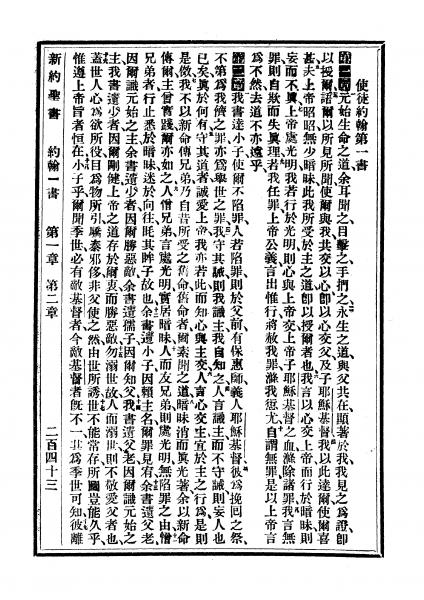 使徒約翰第一書
第一章元始生命之道余耳聞之目擊之手捫之永生之道與父共在顯著於我我見之爲證卽
以授爾諸爾以所見所聞使爾與我共交以心卽以心交父及子耶穌基督我以此達爾使爾喜
甚夫上帝昭昭無少暗昧此我所受於主之道卽以授爾者也我言以心交上帝而行於暗昧則
妄而不眞上帝處光明我若行於光明則心與上帝交上帝子耶穌基督之血滌除諸罪我言無
罪則自欺而失眞理若我任罪上帝公義言出惟行將赦我罪滌我愆尤自謂無罪是以上帝言
爲不然去道不亦遠乎
第二章我書達小子使爾不陷罪人若陷罪則於父前有保惠師義人耶穌基督彼爲挽回之祭
不第爲我儕之罪亦爲舉世之罪我守其誡則我識主我自知之人言識主而不守誡則妄人也
已矣眞於何有守其道者誠愛上帝我亦若此而知心與主交人言心交主宜於主之行爲是則
是傚我不以新命傳兄弟乃自昔所受之舊命舊命者爾素聞之道暗昧消而眞光著余以新命
傳爾主曾實踐爾亦如之人憎兄弟言處光明實居暗昧人而友兄弟則處光明無陷罪之由憎
兄弟者行止悉於暗昧迷於向往眊其眸子故也余書遺小子因賴主名爾罪見宥余書遺父老
因爾識元始之主余書遺少者因爾勝惡敵余書遺孺子因爾知父我書遺父老因爾識元始之
主我書遺少者因爾剛健上帝之道存於爾衷而勝惡敵勿溺世故人而溺世則不敬愛父者也
蓋世人心爲欲所役目爲物所引驕泰邪侈非父使之然由世所誘世不能常存所圖豈能久乎
惟遵上帝旨者恒在小子乎爾聞季世必有敵基督者今敵基督者旣不一非爲季世可知彼離
新約聖書 約翰一書 第一章 第二章 二百四十三